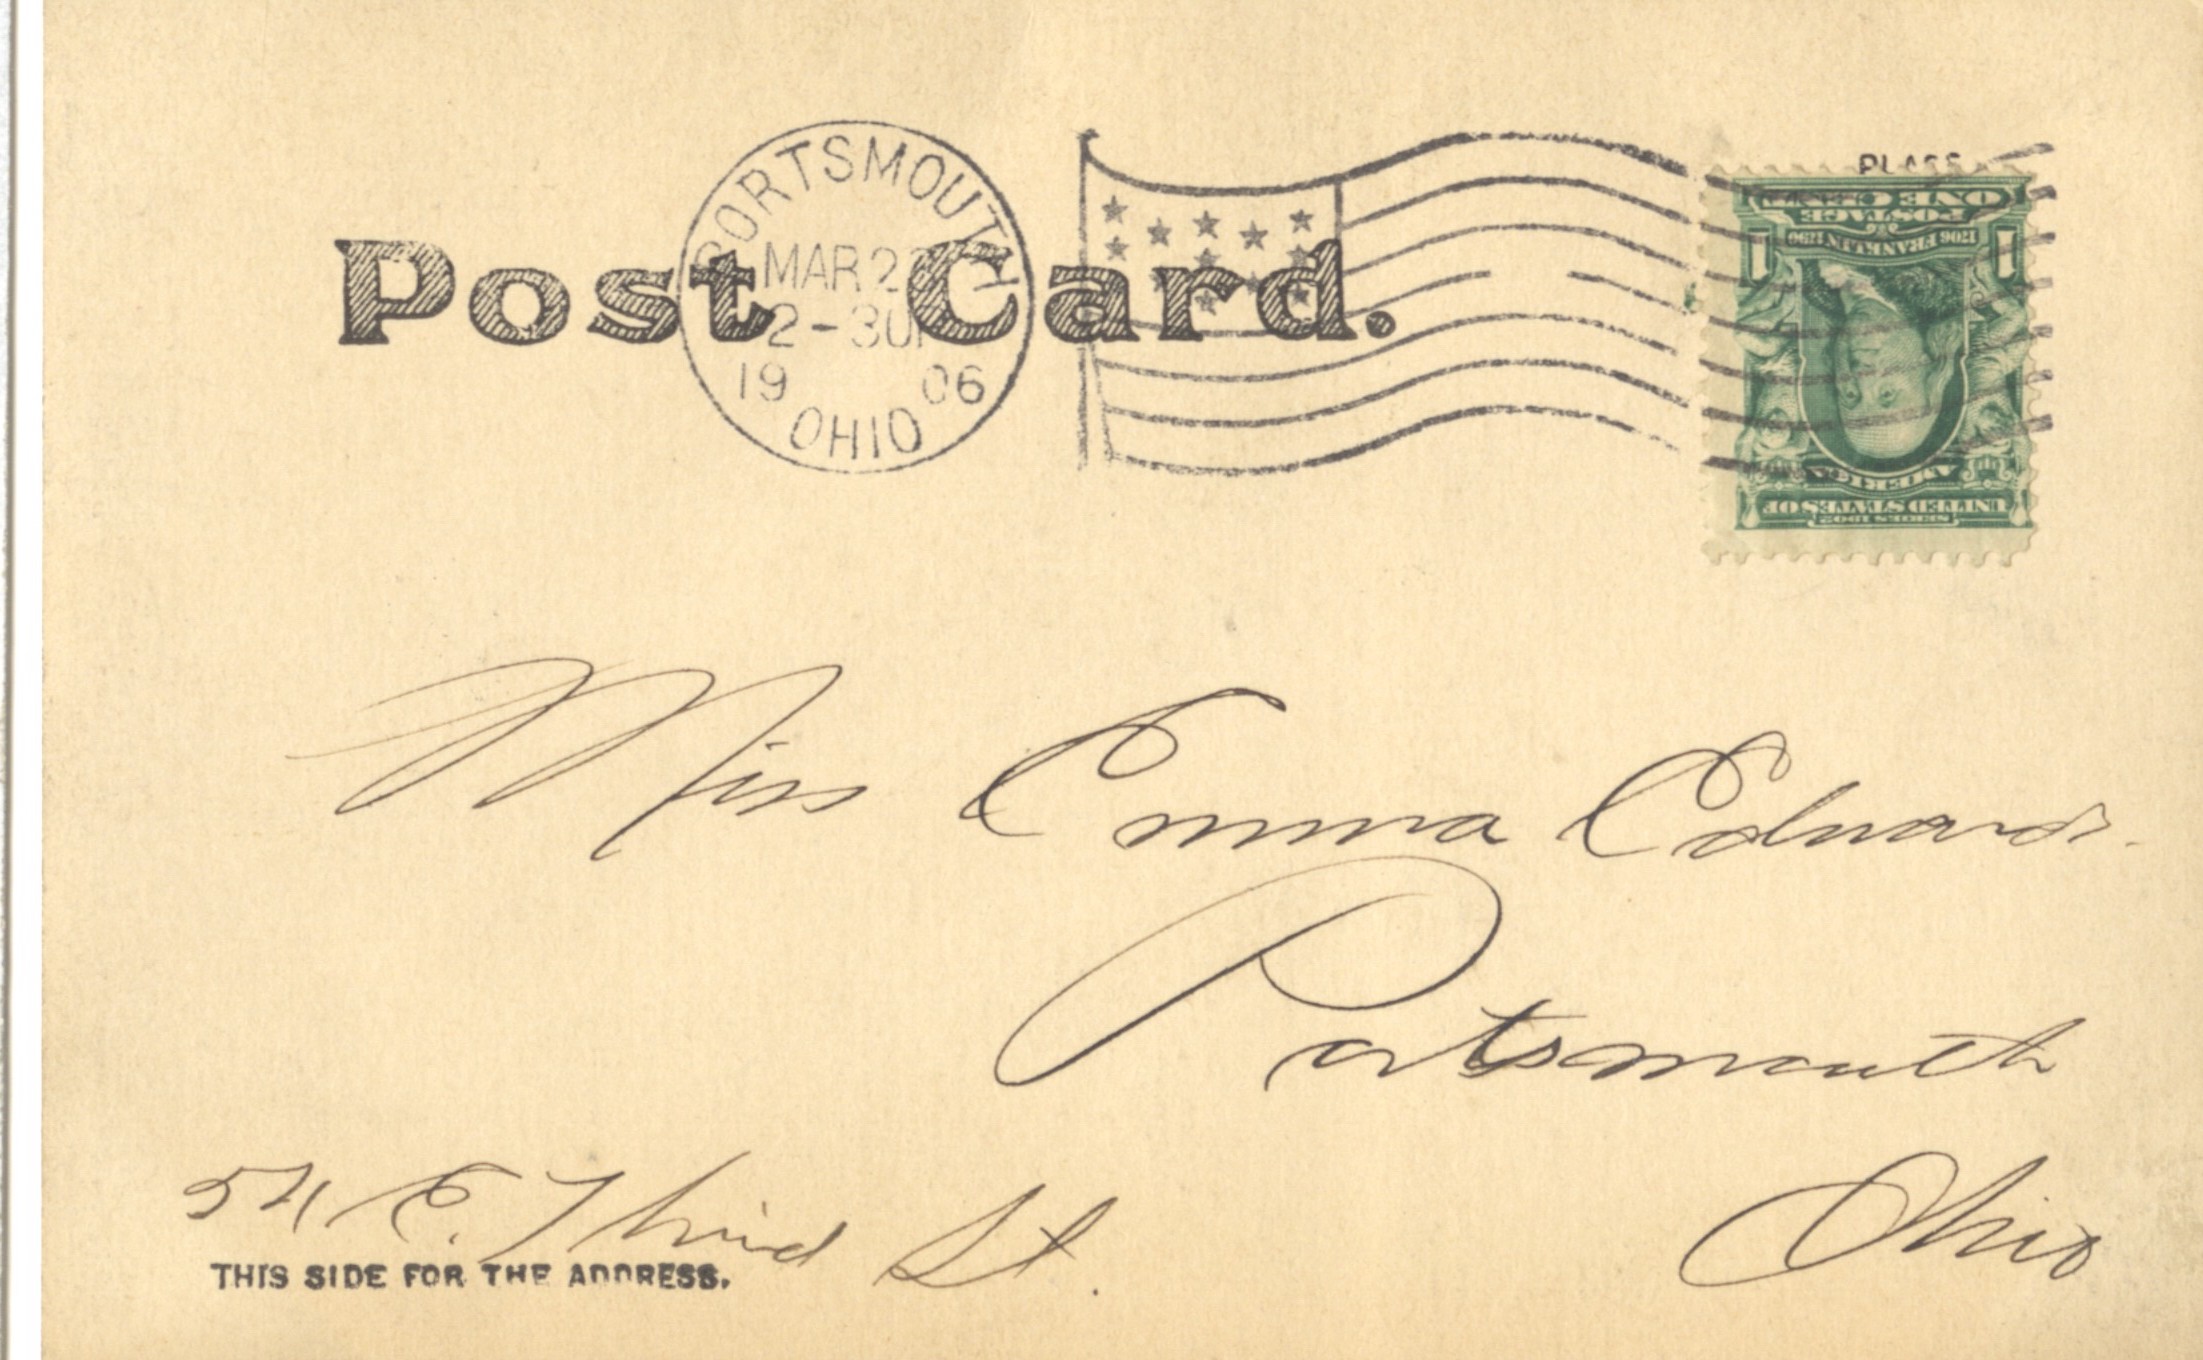 PORTSMOUTH
MAR 2
2-30
19 06
OHIO
Post Card.
ONE CENT
POSTAGE
1706 FRANKLIN 1790
1 1
AMERICA
UNITED STATES OF
SERIES 1902
Miss Emma Edwards.
Portsmouth
Ohio
E. Third St.
THIS SIDE FOR THE ADDRESS.